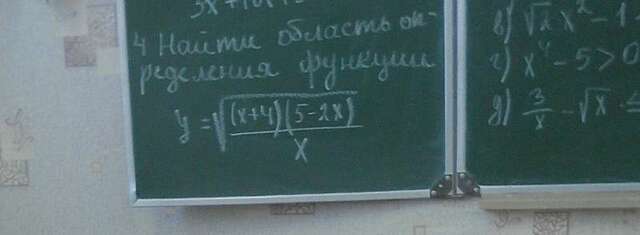 4 Найти область оп-
ределения функции
y = √((x+4)(5-2x)/x)
в) √2 x² - 1
г) x⁴ - 5 > 0
д) 3/x - √x